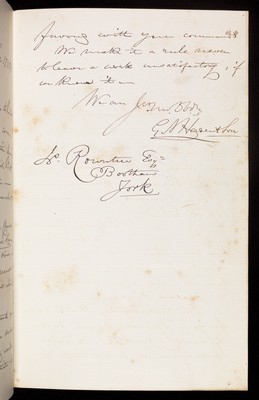 favoring with your commands
We make it a rule never
to leave a work unsatisfactory, if
we know it
We are
Jos. Rowntree Esqre
Bootham
York